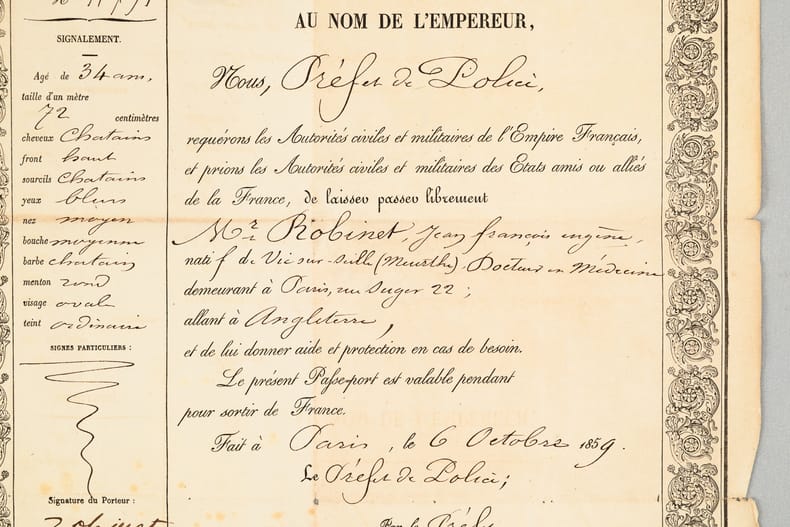 SIGNALEMENT.
Agé de 34 ans,
taille d'un mètre
72 centimètres
cheveux Chatains
front haut
sourcils Chatains
yeux bleus
nez moyen
bouche moyenne
barbe chatain
menton rond
visage ovale
teint ordinaire
SIGNES PARTICULIERS :
Signature du Porteur :
Robinet
AU NOM DE L'EMPEREUR,
Nous, Préfet de Police,
requérons les Autorités civiles et militaires de l'Empire Français,
et prions les Autorités civiles et militaires des Etats amis ou alliés
de la France, de laisser passer librement
Mr Robinet, Jean françois eugène,
natif de Vic-sur-Seille (Meurthe), Docteur en Médecine
demeurant à Paris, rue Suger 22 ;
allant à Angleterre,
et de lui donner aide et protection en cas de besoin.
Le présent Passe-port est valable pendant
pour sortir de France.
Fait à Paris, le 6 Octobre 1859.
Le Préfet de Police;
Préfet